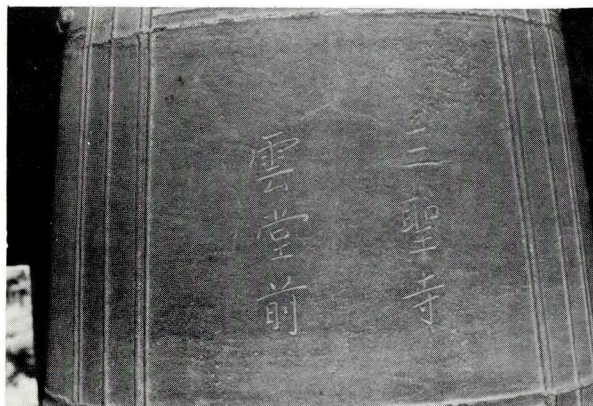 三聖寺
雲堂前